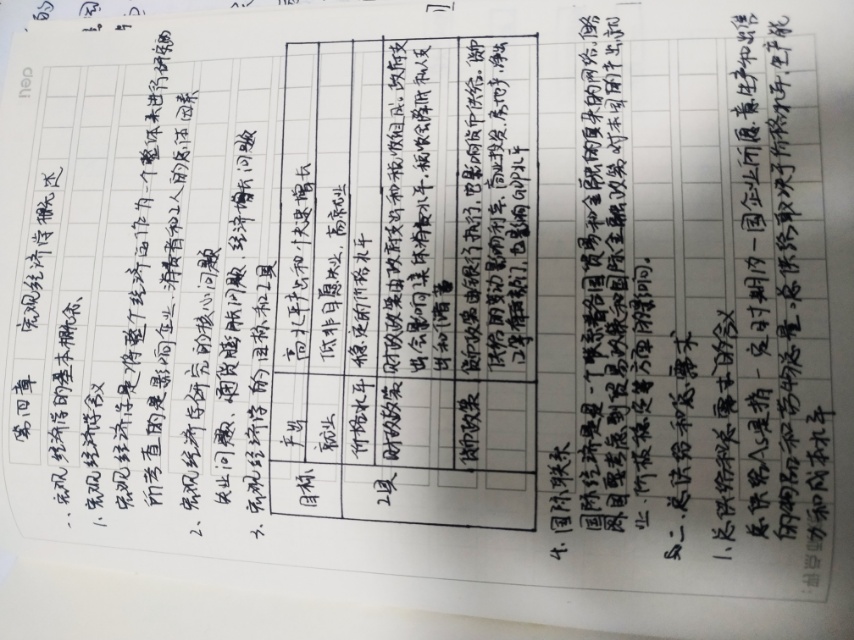 第四章 宏观经济学概述
一、宏观经济学的基本概念
1、宏观经济学含义
宏观经济学是将整个经济运作为一个整体来进行研究的
所考查的是影响企业、消费者和工人的总体因素
2、宏观经济学研究的核心问题
失业问题、通货膨胀问题、经济增长问题
3、宏观经济学的目标和工具
目标 产出 高水平产出和快速增长
就业 低非自愿失业,高就业
价格水平 稳定的价格水平
工具 财政政策 财政政策由政府支出和税收组成,政府支
出会影响集体消费水平,税收会降低私人支
出和储蓄
货币政策 货币政策由银行执行,也影响货币供给。货币
供给的变动影响利率、商业投资、房地产、净出
口等有关部门,也影响GDP水平
4、国际联系
国际经济是一个联系着各国贸易和金融的复杂的网络,
两国要考虑到贸易政策和国际金融政策对本国的产出就
业、价格稳定等方面的影响。
二、总供给和总需求
1、总供给和总需求的含义
总供给AS是指一定时期内一国企业所愿意生产和出售
的物品和劳务总量。总供给取决于价格水平、生产能
力和成本水平
点评: